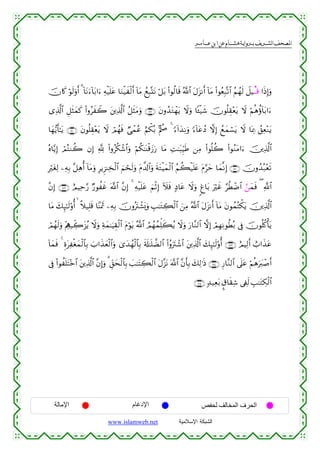 المصحف الشريف برواية هشام عن ابن عامر
وَإِذَا قِيلَ لَهُمُ ٱتَّبِعُوا۟ مَآ أَنزَلَ ٱللَّهُ قَالُوا۟ بَلْ نَتَّبِعُ مَآ أَلْفَيْنَا عَلَيْهِ ءَابَآءَنَآ ۗ أَوَلَوْ كَانَ
ءَابَآؤُهُمْ لَا يَعْقِلُونَ شَيْـًٔا وَلَا يَهْتَدُونَ وَمَثَلُ ٱلَّذِينَ كَفَرُوا۟ كَمَثَلِ ٱلَّذِى
يَنْعِقُ بِمَا لَا يَسْمَعُ إِلَّا دُعَآءً وَنِدَآءً ۚ صُمٌّۢ بُكْمٌ عُمْىٌ فَهُمْ لَا يَعْقِلُونَ يَـٰٓأَيُّهَا
ٱلَّذِينَ ءَامَنُوا۟ كُلُوا۟ مِن طَيِّبَـٰتِ مَا رَزَقْنَـٰكُمْ وَٱشْكُرُوا۟ لِلَّهِ إِن كُنتُمْ إِيَّاهُ
تَعْبُدُونَ إِنَّمَا حَرَّمَ عَلَيْكُمُ ٱلْمَيْتَةَ وَٱلدَّمَ وَلَحْمَ ٱلْخِنزِيرِ وَمَآ أُهِلَّ بِهِۦ لِغَيْرِ
ٱللَّهِ ۖ فَمَنُ ٱضْطُرَّ غَيْرَ بَاغٍ وَلَا عَادٍ فَلَآ إِثْمَ عَلَيْهِ ۚ إِنَّ ٱللَّهَ غَفُورٌ رَّحِيمٌ إِنَّ
ٱلَّذِينَ يَكْتُمُونَ مَآ أَنزَلَ ٱللَّهُ مِنَ ٱلْكِتَـٰبِ وَيَشْتَرُونَ بِهِۦ ثَمَنًا قَلِيلًا ۙ أُو۟لَـٰٓئِكَ مَا
يَأْكُلُونَ فِى بُطُونِهِمْ إِلَّا ٱلنَّارَ وَلَا يُكَلِّمُهُمُ ٱللَّهُ يَوْمَ ٱلْقِيَـٰمَةِ وَلَا يُزَكِّيهِمْ وَلَهُمْ
عَذَابٌ أَلِيمٌ أُو۟لَـٰٓئِكَ ٱلَّذِينَ ٱشْتَرَوُا۟ ٱلضَّلَـٰلَةَ بِٱلْهُدَىٰ وَٱلْعَذَابَ بِٱلْمَغْفِرَةِ ۚ فَمَآ
أَصْبَرَهُمْ عَلَى ٱلنَّارِ ذَٰلِكَ بِأَنَّ ٱللَّهَ نَزَّلَ ٱلْكِتَـٰبَ بِٱلْحَقِّ ۗ وَإِنَّ ٱلَّذِينَ ٱخْتَلَفُوا۟ فِى
ٱلْكِتَـٰبِ لَفِى شِقَاقٍۭ بَعِيدٍ
الحرف المخالف لحفص الإدغام الإمالة
الشبكة الإسلامية www.islamweb.net